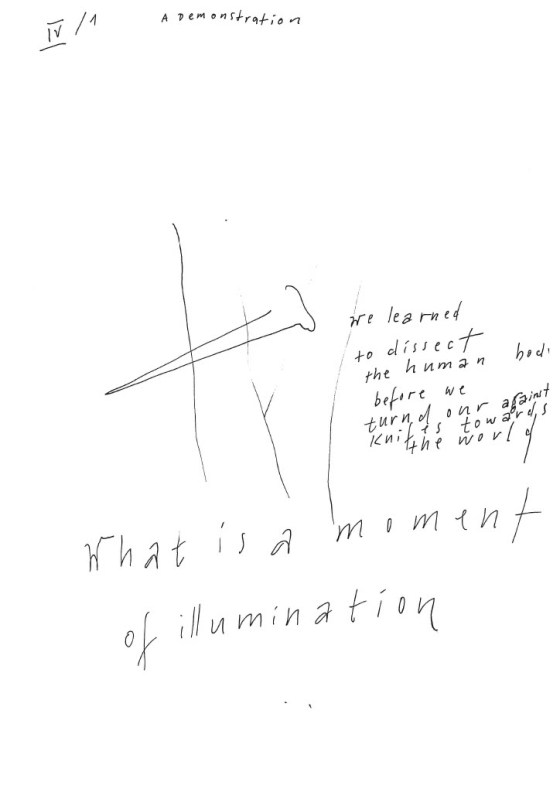 IV/1
A Demonstration
we learned
to dissect
the human bod
before we
turnd our against
Knifes towards
the world
What is a moment
of illumination